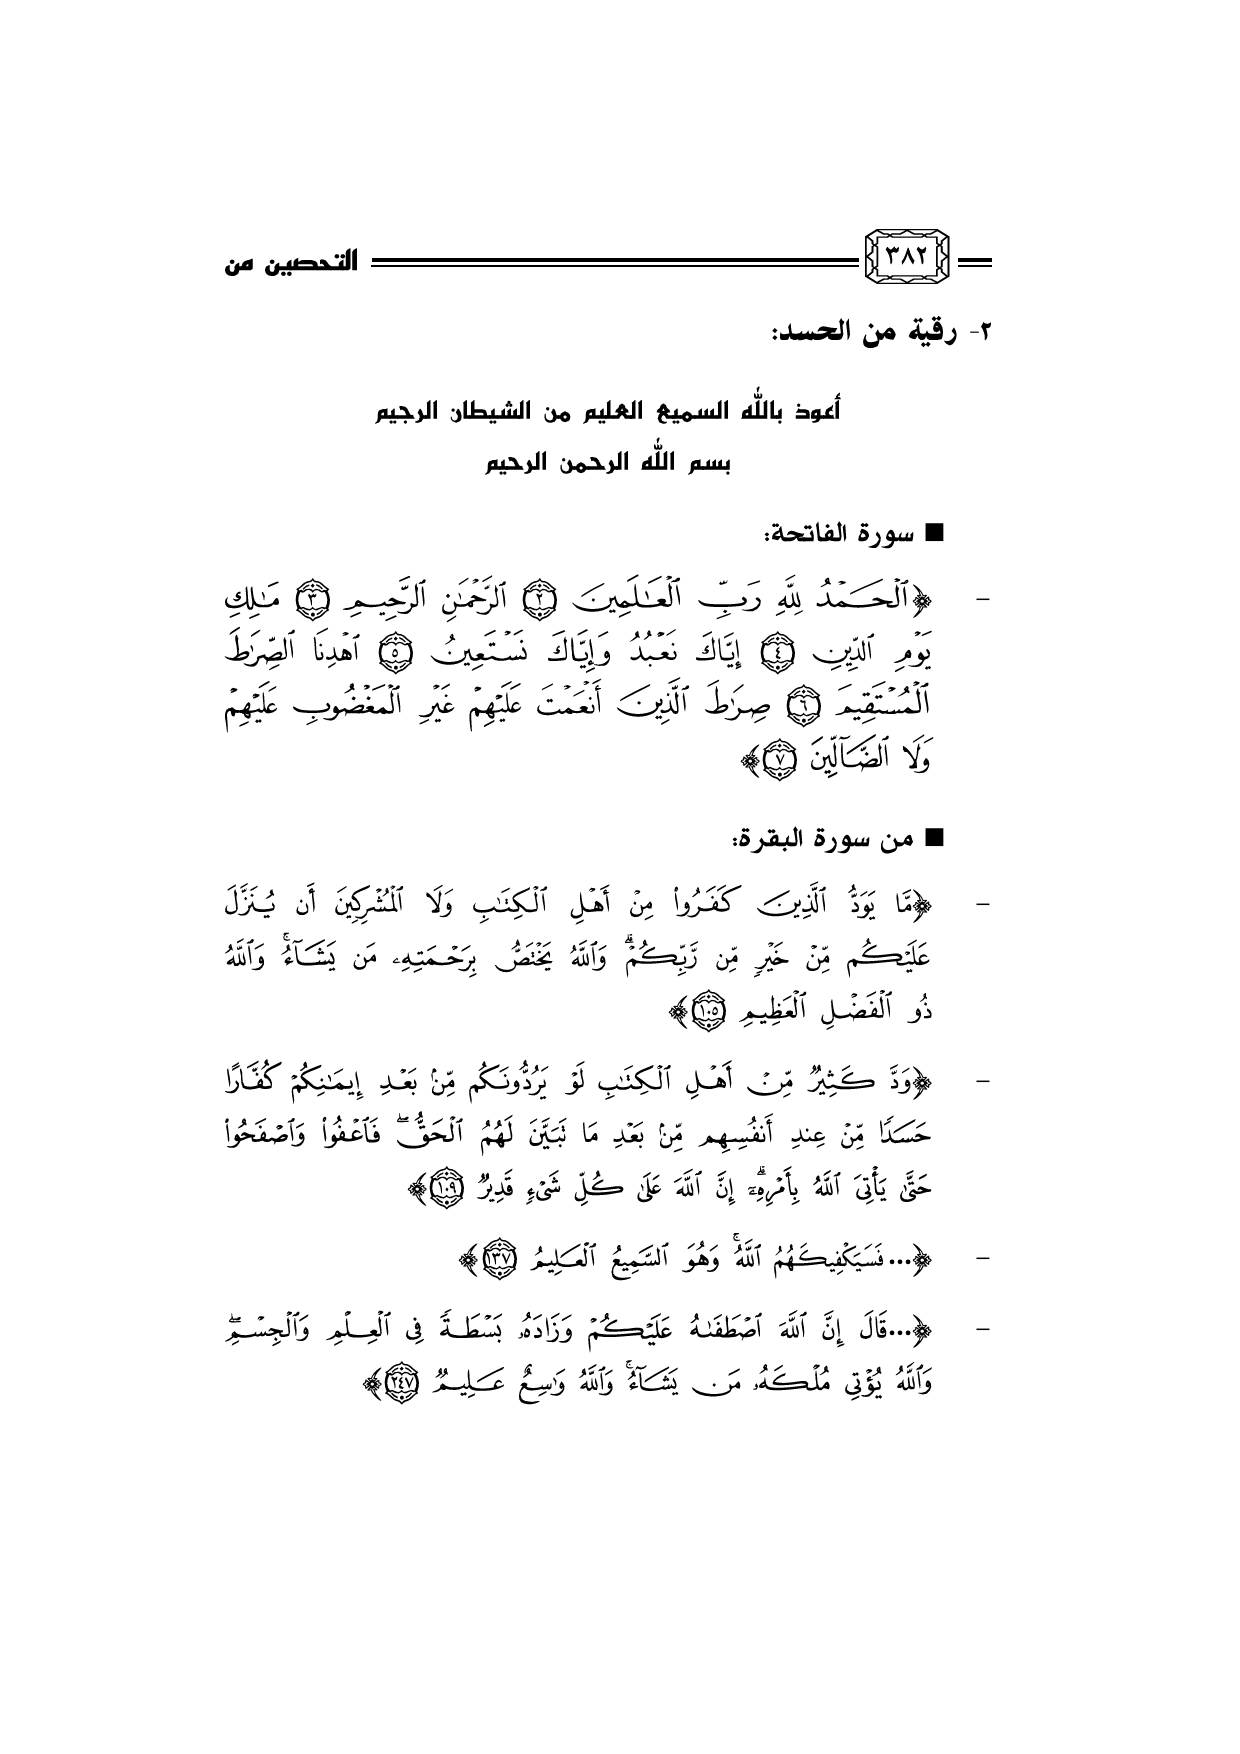 ٣٨٢ التحصين من
٢- رقية من الحسد:
أعوذ بالله السميع العليم من الشيطان الرجيم
بسم الله الرحمن الرحيم
■ سورة الفاتحة:
- ﴿ٱلۡحَمۡدُ لِلَّهِ رَبِّ ٱلۡعَٰلَمِينَ ٢ ٱلرَّحۡمَٰنِ ٱلرَّحِيمِ ٣ مَٰلِكِ
يَوۡمِ ٱلدِّينِ ٤ إِيَّاكَ نَعۡبُدُ وَإِيَّاكَ نَسۡتَعِينُ ٥ ٱهۡدِنَا ٱلصِّرَٰطَ
ٱلۡمُسۡتَقِيمَ ٦ صِرَٰطَ ٱلَّذِينَ أَنۡعَمۡتَ عَلَيۡهِمۡ غَيۡرِ ٱلۡمَغۡضُوبِ عَلَيۡهِمۡ
وَلَا ٱلضَّآلِّينَ ٧﴾
■ من سورة البقرة:
- ﴿مَّا يَوَدُّ ٱلَّذِينَ كَفَرُواْ مِنۡ أَهۡلِ ٱلۡكِتَٰبِ وَلَا ٱلۡمُشۡرِكِينَ أَن يُنَزَّلَ
عَلَيۡكُم مِّنۡ خَيۡرٖ مِّن رَّبِّكُمۡۚ وَٱللَّهُ يَخۡتَصُّ بِرَحۡمَتِهِۦ مَن يَشَآءُۚ وَٱللَّهُ
ذُو ٱلۡفَضۡلِ ٱلۡعَظِيمِ ١٠٥﴾
- ﴿وَدَّ كَثِيرٞ مِّنۡ أَهۡلِ ٱلۡكِتَٰبِ لَوۡ يَرُدُّونَكُم مِّنۢ بَعۡدِ إِيمَٰنِكُمۡ كُفَّارًا
حَسَدٗا مِّنۡ عِندِ أَنفُسِهِم مِّنۢ بَعۡدِ مَا تَبَيَّنَ لَهُمُ ٱلۡحَقُّۖ فَٱعۡفُواْ وَٱصۡفَحُواْ
حَتَّىٰ يَأۡتِيَ ٱللَّهُ بِأَمۡرِهِۦٓۗ إِنَّ ٱللَّهَ عَلَىٰ كُلِّ شَيۡءٖ قَدِيرٞ ١٠٩﴾
- ﴿...فَسَيَكۡفِيكَهُمُ ٱللَّهُۚ وَهُوَ ٱلسَّمِيعُ ٱلۡعَلِيمُ ١٣٧﴾
- ﴿...قَالَ إِنَّ ٱللَّهَ ٱصۡطَفَىٰهُ عَلَيۡكُمۡ وَزَادَهُۥ بَسۡطَةٗ فِي ٱلۡعِلۡمِ وَٱلۡجِسۡمِۖ
وَٱللَّهُ يُؤۡتِي مُلۡكَهُۥ مَن يَشَآءُۚ وَٱللَّهُ وَٰسِعٌ عَلِيمٞ ٢٤٧﴾